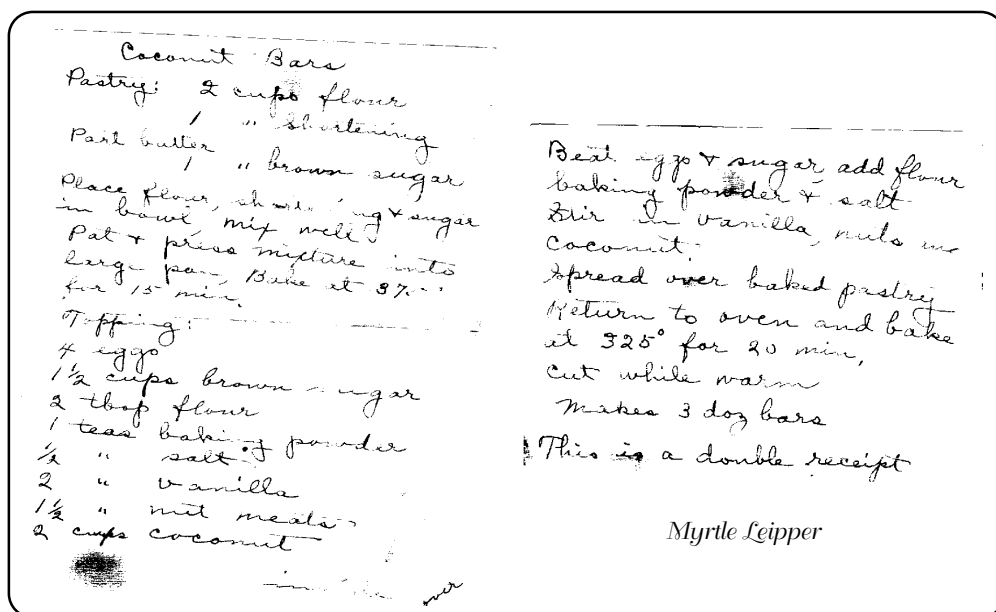 Coconut Bars
Pastry: 2 cups flour
1 " shortening
Part butter
1 " brown sugar
Place flour, shortening & sugar
in bowl, mix well
Pat & press mixture into
large pan, Bake at
for 15 min.
Topping:
4 eggs
1 1/2 cups brown sugar
2 tbsp flour
1 teas baking powder
1/2 " salt
2 " vanilla
1 1/2 " nut meats
2 cups coconut
over
Beat eggs & sugar, add flour
baking powder & salt
Stir in vanilla, nuts
coconut.
Spread over baked pastry
Return to oven and bake
at 325° for 20 min,
Cut while warm
Makes 3 doz bars
This is a double receipt
Myrtle Leipper